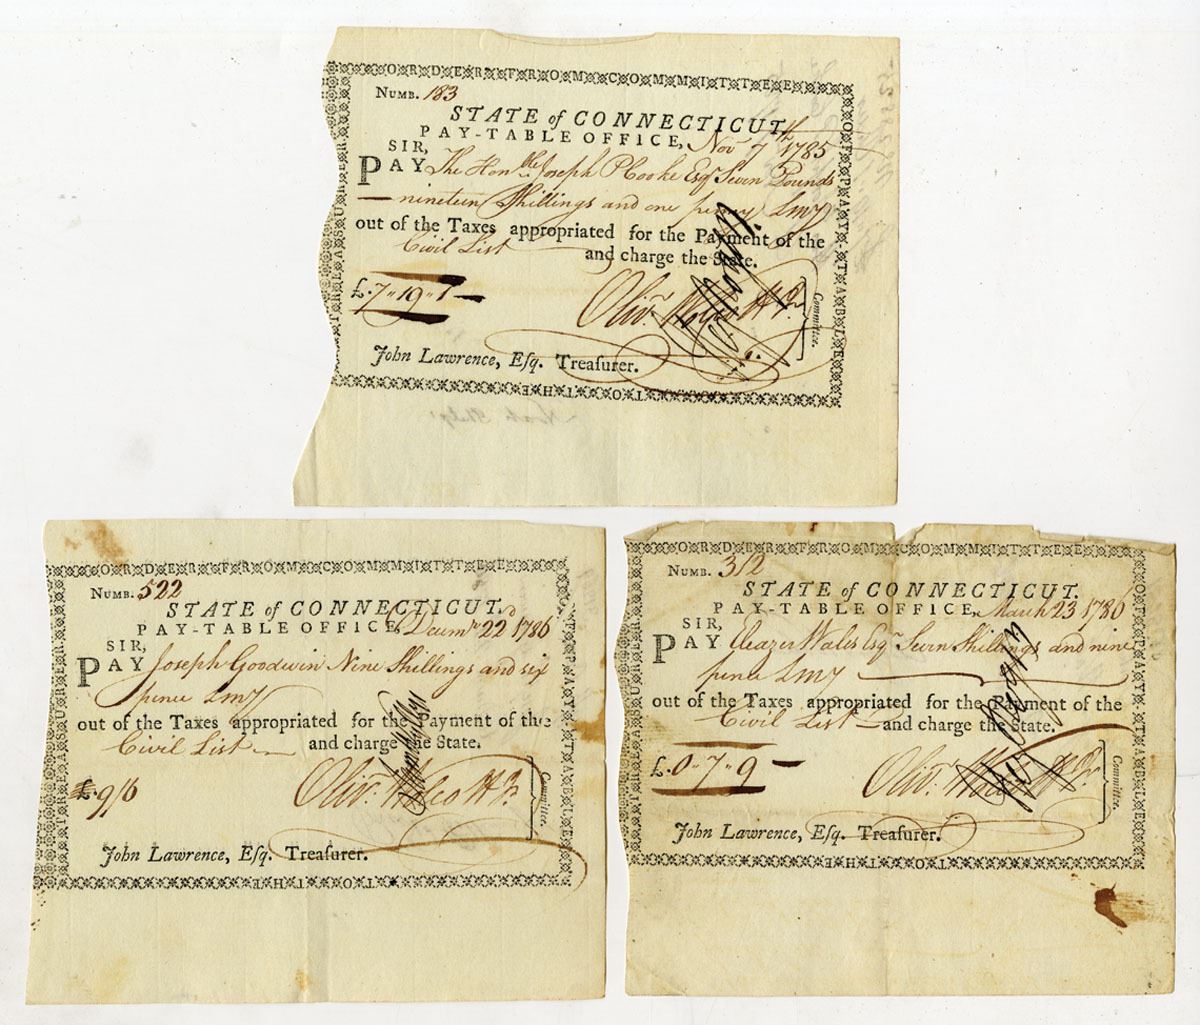 ORDER FROM COMMITTEE
OF PAY-TABLE
TO THE
TREASURER
NUMB. 183
STATE of CONNECTICUT.
PAY-TABLE OFFICE, Novr 7th 1785
SIR,
PAY The Honble Joseph P Cooke Esqr Seven Pounds
nineteen Shillings and one penny Lmy
out of the Taxes appropriated for the Payment of the
Civil List and charge the State.
£. 7 " 19 " 1
Olivr Wolcott Jr.
Committee.
John Lawrence, Esq. Treasurer.
ORDER FROM COMMITTEE
OF PAY-TABLE
TO THE
TREASURER
NUMB. 522
STATE of CONNECTICUT.
PAY-TABLE OFFICE, Decemr 22d 1786
SIR,
PAY Joseph Goodwin Nine Shillings and six
pence Lmy
out of the Taxes appropriated for the Payment of the
Civil List and charge the State.
£. 9/6
Olivr Wolcott Jr.
Committee.
John Lawrence, Esq. Treasurer.
ORDER FROM COMMITTEE
OF PAY-TABLE
TO THE
TREASURER
NUMB. 312
STATE of CONNECTICUT.
PAY-TABLE OFFICE, March 23 1786
SIR,
PAY Eleazer Wales Esqr Seven Shillings and nine
pence Lmy
out of the Taxes appropriated for the Payment of the
Civil List and charge the State.
£. 0 " 7 " 9
Olivr Wolcott Jr.
Committee.
John Lawrence, Esq. Treasurer.